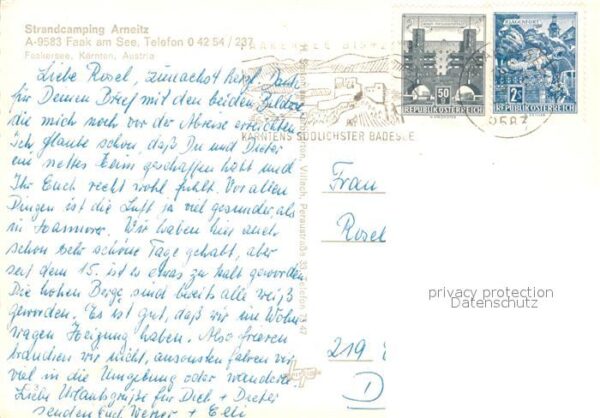 Strandcamping Arneitz
A-9583 Faak am See, Telefon 0 42 54 / 237
Faakersee, Kärnten, Austria
Liebe Rosel, zunächst herzl. Dank
für Deinen Brief mit den beiden Bildern
die mich noch vor der Abreise erreichten.
Ich glaube schon, daß Du und Dieter
ein nettes Heim geschaffen habt und
Ihr Euch recht wohl fühlt. Vor allen
Dingen ist die Luft ja viel gesunder, als
in Hannover. Wir haben hier auch
schon sehr schöne Tage gehabt, aber
seit dem 15. ist es etwas zu kalt geworden.
Die hohen Berge sind bereits alle weiß
geworden. Es ist gut, daß wir im Wohn-
wagen Heizung haben. Also frieren
brauchen wir nicht, ansonsten fahren wir
viel in die Umgebung oder wandern.
Liebe Urlaubsgrüße für Dich + Dieter
senden Euch Werner + Elli
FAAKER SEE
KÄRNTENS SÜDLICHSTER BADESEE
50
REPUBLIK ÖSTERREICH
KLAGENFURT
2
REPUBLIK ÖSTERREICH
Villach, Peraustraße 33, Telefon
Frau
Rosel
219
D
privacy protection
Datenschutz